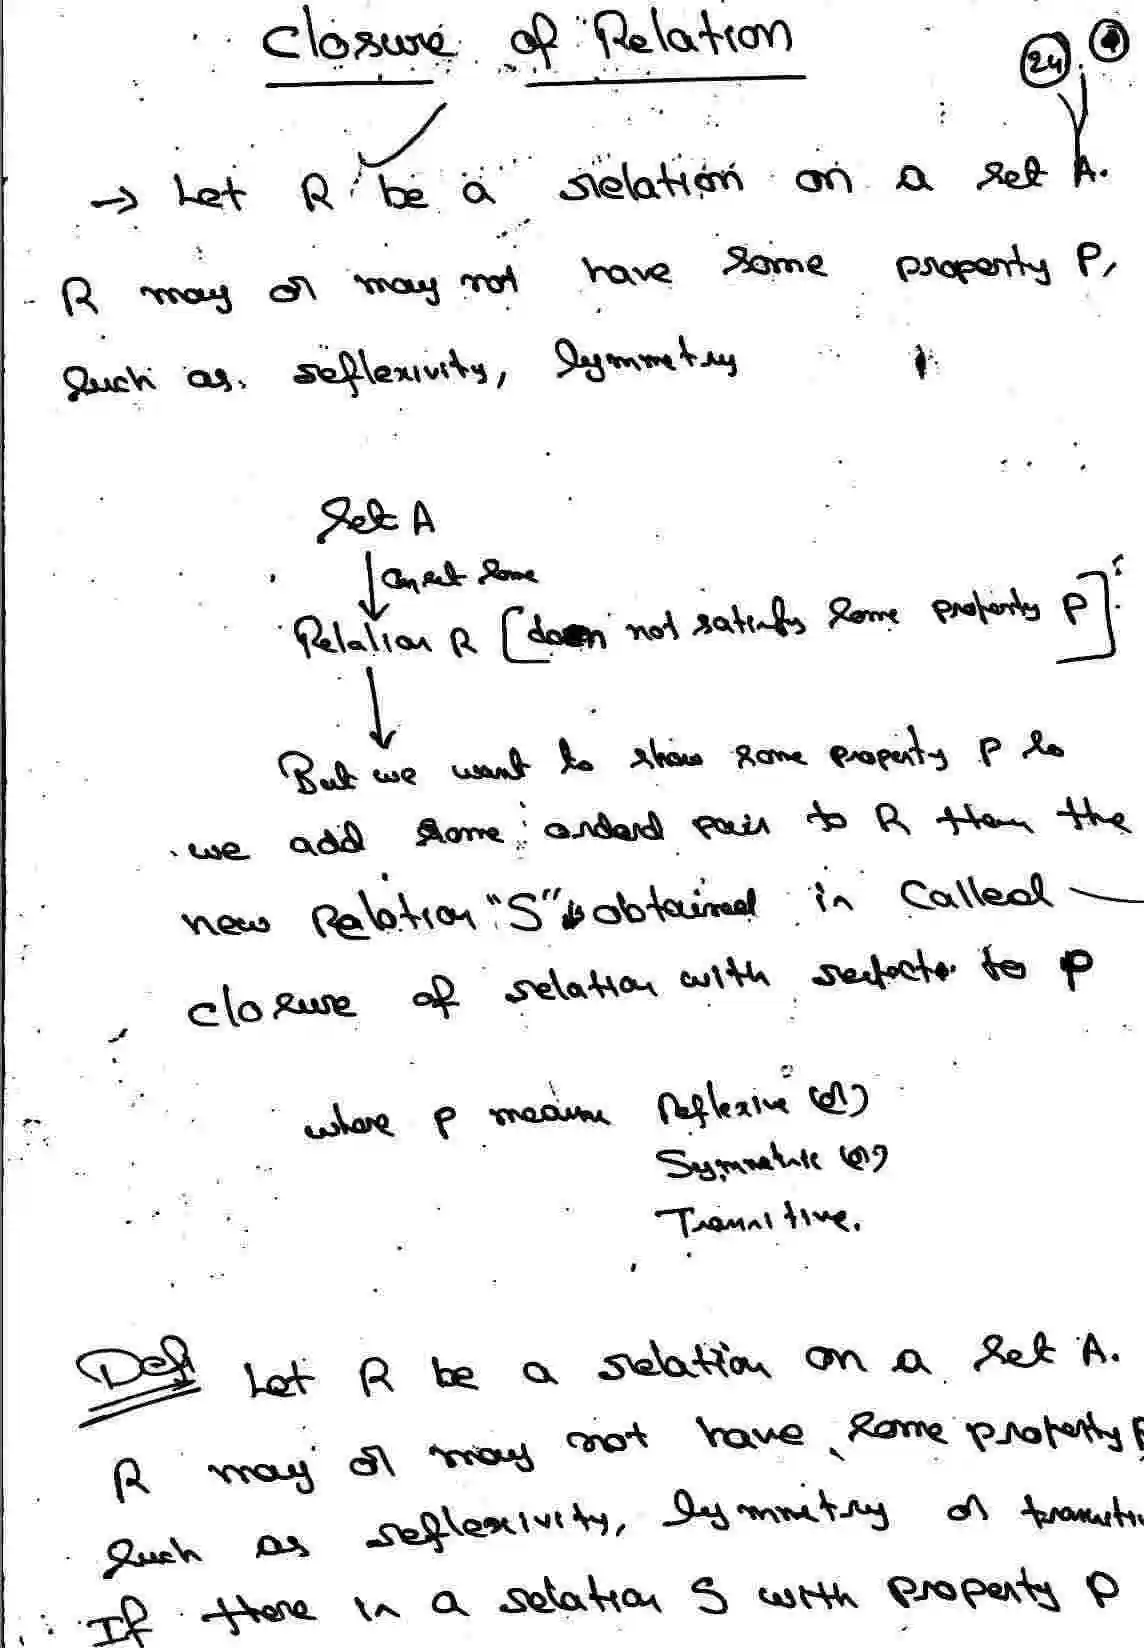 Closure of Relation
24
→ Let R be a relation on a set A.
R may or may not have some property P,
such as reflexivity, symmetry
Set A
Can set some
Relation R [does not satisfy some property P]
But we want to show some property P so
we add some ordered pair to R then the
new Relation "S" obtained is called
closure of relation with respect to P
where P means Reflexive (or)
Symmetric (or)
Transitive.
Def Let R be a relation on a set A.
R may or may not have some property P
such as reflexivity, symmetry or transiti
If there is a relation S with property P